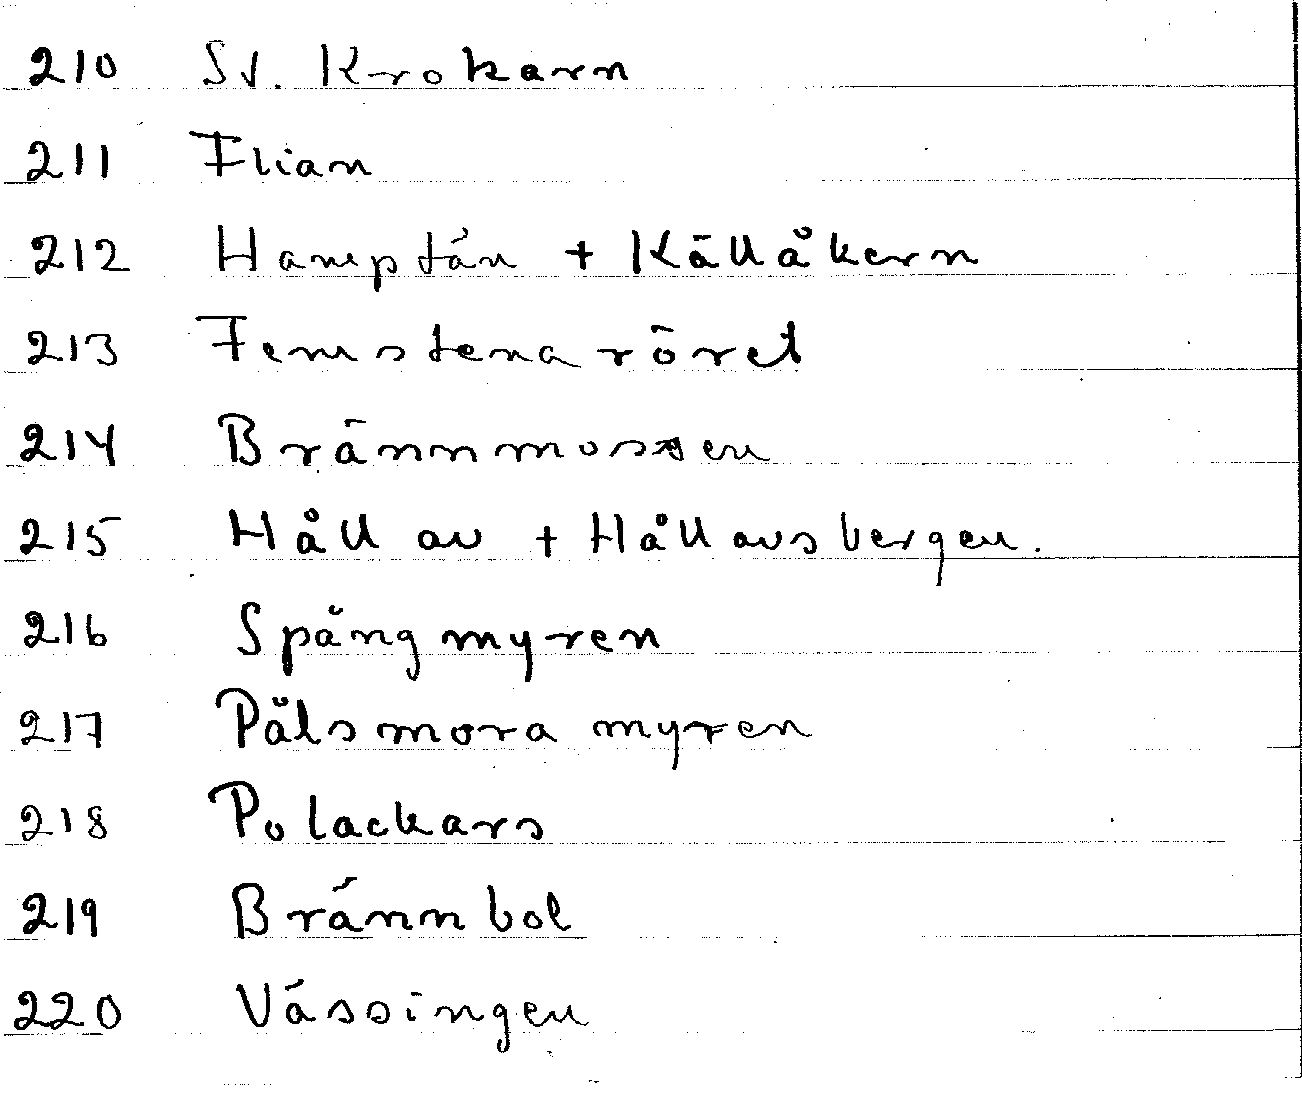 210 Sv. Krokarn
211 Flian
212 Hamptän + Källåkern
213 Femstenaröret
214 Brännmossen
215 Håll av + Hållavsbergen.
216 Spängmyren
217 Pälsmora myren
218 Polackars
219 Brännbol
220 Vässingen